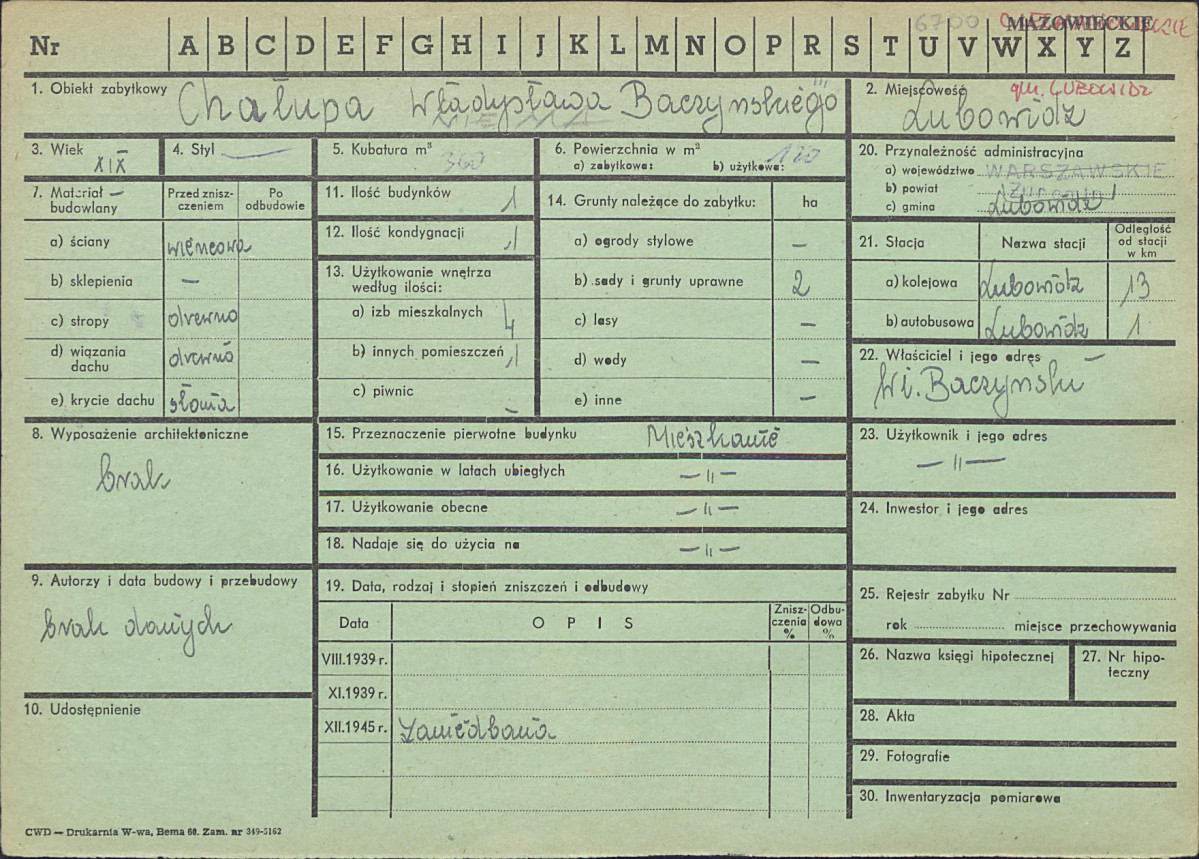 6700 MAZOWIECKIE
Nr A B C D E F G H I J K L M N O P R S T U V W X Y Z
1. Obiekt zabytkowy Chałupa Władysława Baczyńskiego
2. Miejscowość gm. LUBOWIDZ
Lubowidz
3. Wiek XIX
4. Styl —
5. Kubatura m³ 360
6. Powierzchnia w m² 120
a) zabytkowa: b) użytkowa:
7. Materiał budowlany
Przed zniszczeniem
Po odbudowie
a) ściany wieńcowa
b) sklepienia —
c) stropy drewno
d) wiązania dachu drewno
e) krycie dachu słoma
8. Wyposażenie architektoniczne
brak
9. Autorzy i data budowy i przebudowy
brak danych
10. Udostępnienie
11. Ilość budynków 1
12. Ilość kondygnacji 1
13. Użytkowanie wnętrza według ilości:
a) izb mieszkalnych 4
b) innych pomieszczeń 1
c) piwnic —
14. Grunty należące do zabytku: ha
a) ogrody stylowe —
b) sady i grunty uprawne 2
c) lasy —
d) wody —
e) inne —
15. Przeznaczenie pierwotne budynku Mieszkanie
16. Użytkowanie w latach ubiegłych — 〃 —
17. Użytkowanie obecne — 〃 —
18. Nadaje się do użycia na — 〃 —
19. Data, rodzaj i stopień zniszczeń i odbudowy
Data
OPIS
Zniszczenia %
Odbudowa %
VIII.1939 r.
XI.1939 r.
XII.1945 r. Zaniedbania
20. Przynależność administracyjna
a) województwo WARSZAWSKIE
b) powiat
c) gmina Lubowidz
21. Stacja
Nazwa stacji
Odległość od stacji w km
a) kolejowa Lubowidz 13
b) autobusowa Lubowidz 1
22. Właściciel i jego adres —
Wł. Baczyński
23. Użytkownik i jego adres
— 〃 —
24. Inwestor i jego adres
25. Rejestr zabytku Nr
rok miejsce przechowywania
26. Nazwa księgi hipotecznej
27. Nr hipoteczny
28. Akta
29. Fotografie
30. Inwentaryzacja pomiarowa
CWD — Drukarnia W-wa, Bema 60. Zam. nr 349-5162